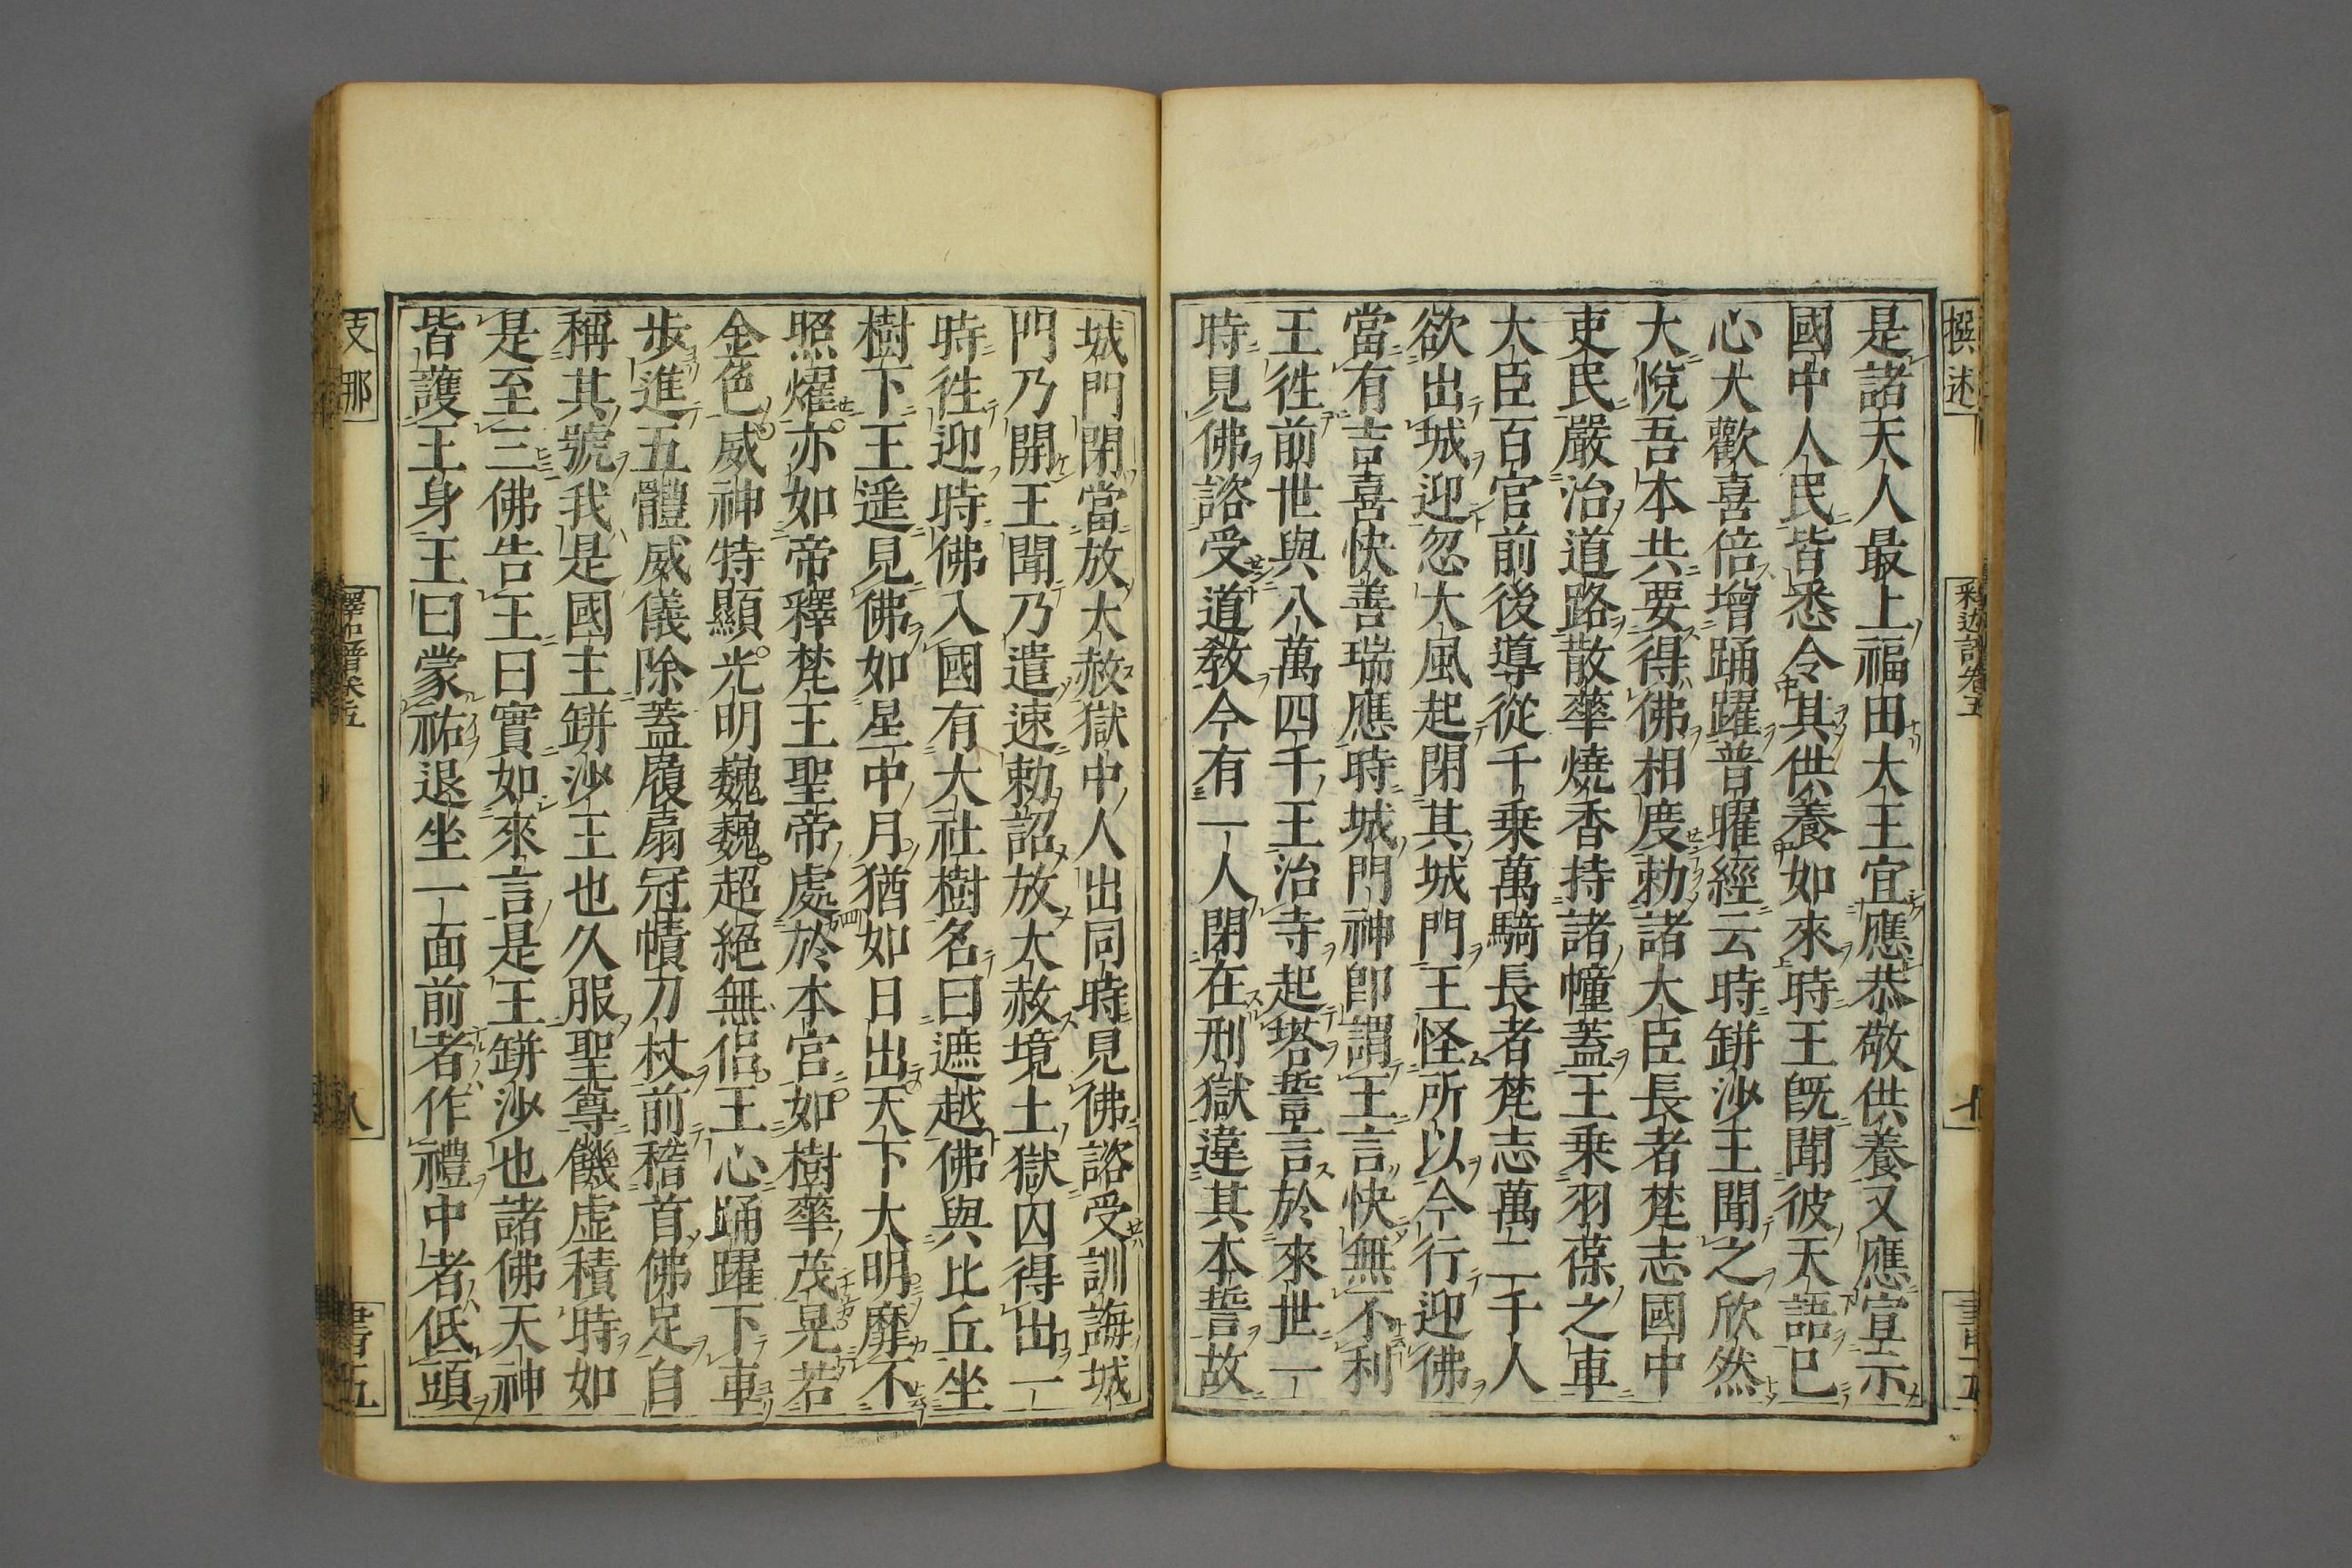 撰述
釋迦譜卷五
七
書五
是諸天人最上福田大王宜應恭敬供養又應宣示
國中人民皆悉令其供養如來時王既聞彼天語已
心大歡喜倍增踊躍普曜經云時缾沙王聞之欣然
大悅吾本共要得佛相度勅諸大臣長者梵志國中
吏民嚴治道路散華燒香持諸幢蓋王乗羽葆之車
大臣百官前後導從千乗萬騎長者梵志萬二千人
欲出城迎忽大風起閉其城門王怪所以今行迎佛
當有吉喜快善瑞應時城門神卽謂王言快無不利
王徃前世與八萬四千王治寺起塔誓言於來世一
時見佛諮受道教今有一人閉在刑獄違其本誓故
城門閉當放大赦獄中人出同時見佛諮受訓誨城
門乃開王聞乃遣速勅詔放大赦境土獄囚得出一
時徃迎時佛入國有大社樹名曰遮越佛與比丘坐
樹下王遥見佛如星中月猶如日出天下大明靡不
照燿亦如帝釋梵王聖帝處於本宫如樹華茂晃若
金色威神特顯光明巍巍超絕無侣王心踊躍下車
步進五體威儀除蓋履扇冠幘刀杖前稽首佛足自
稱其號我是國主缾沙王也久服聖尊饑虛積時如
是至三佛告王曰實如來言是王缾沙也諸佛天神
皆護王身王曰蒙祐退坐一面前者作禮中者低頭
支那
釋迦譜卷五
八
書五